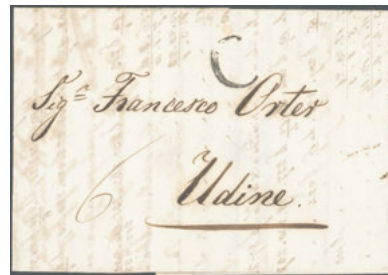 C
Sigr Francesco Orter
6
Udine.